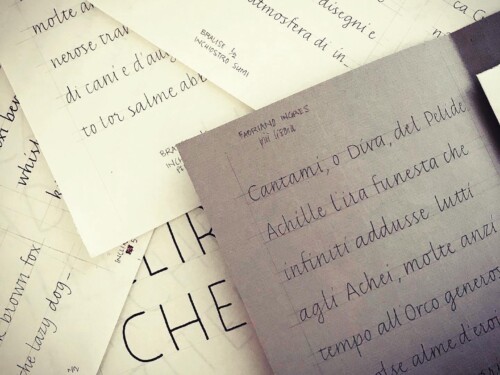 disegni e
atmosfera di in_
BRAUSE 1/2
INCHIOSTRO SUMI
ca C
molte a
nerose tra
di cani e d'aug
to lor salme abb
BRA
INCH
whis
brown fox
he lazy dog-
LIR
CHE
FABRIANO INGRES
Cantami, o Diva, del Pelide
Achille l'ira funesta che
infiniti addusse lutti
agli Achei, molte anzi
tempo all'Orco generos
olse alme d'eroi